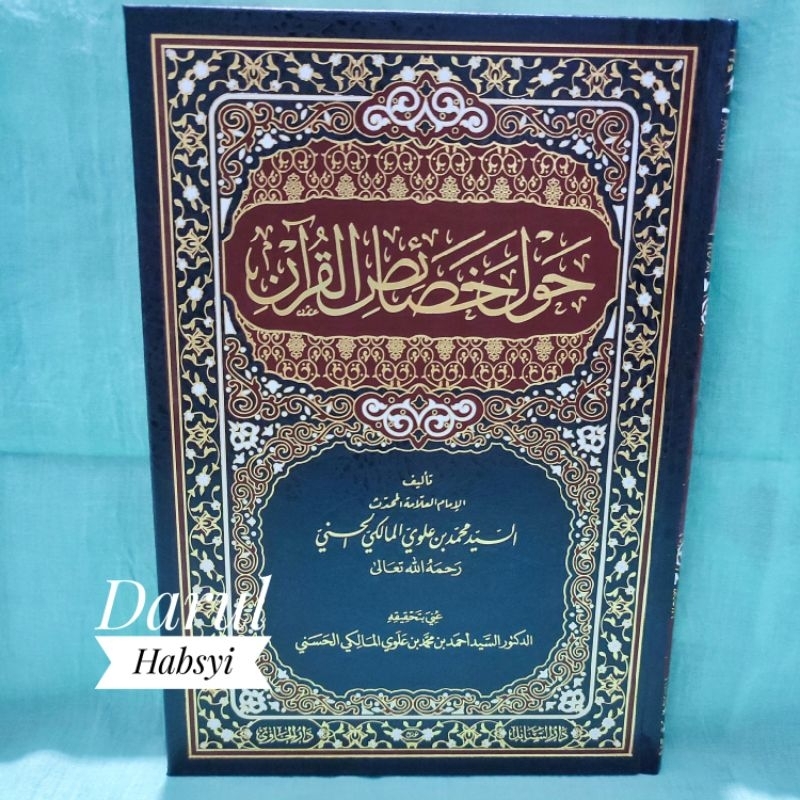 حَوْلَ خَصَائِصِ القُرْآنِ
تأليف
الإمام العلّامة المحدّث
السيّد محمّد بن علوي المالكي الحسنيّ
رحمه الله تعالى
عُني بتحقيقه
الدكتور السيّد أحمد بن محمّد بن علوي المالكي الحسني
دار السنابل
دار الحاوي
Darul
Habsyi